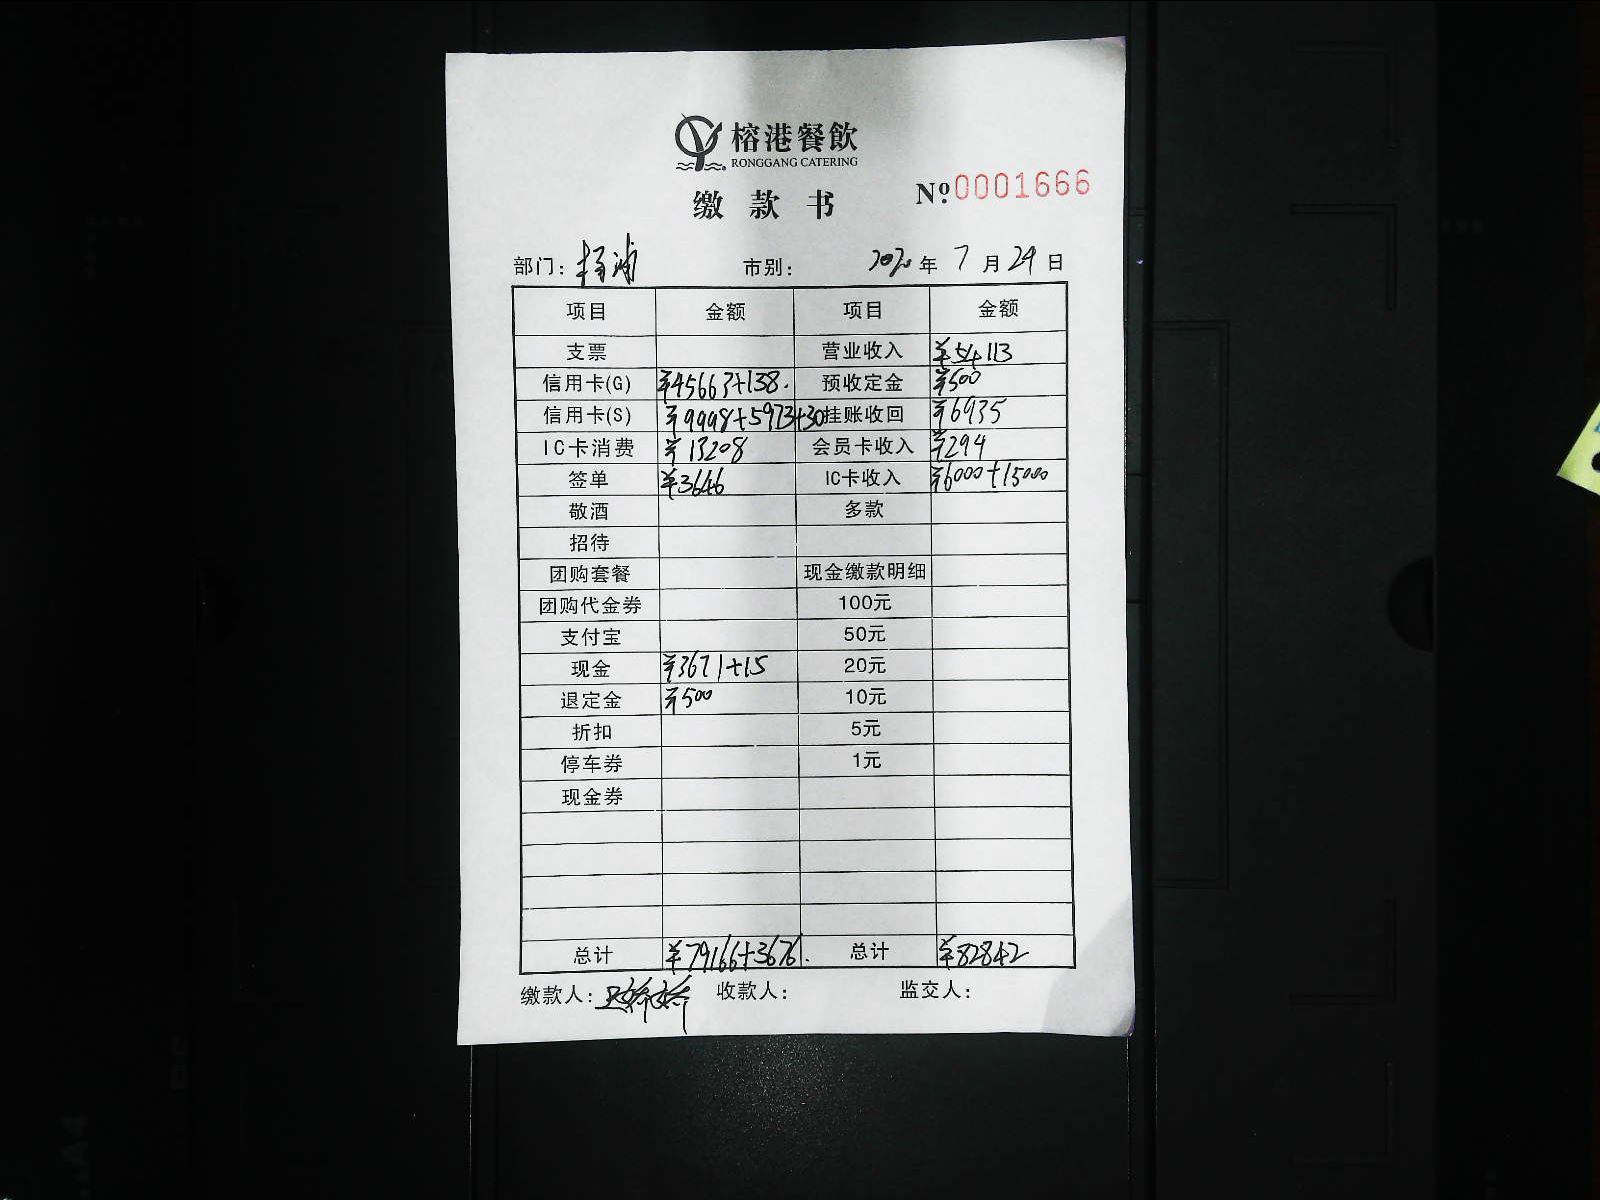 榕港餐飲
RONGGANG CATERING
缴款书 Nº:0001666
部门: 杨浦 市别: 2020年 7月 29日
项目 金额 项目 金额
支票 营业收入 ¥54113
信用卡(G) ¥45663+138. 预收定金 ¥500
信用卡(S) ¥9998+5973+30 挂账收回 ¥6935
IC卡消费 ¥13208 会员卡收入 ¥294
签单 ¥3646 IC卡收入 ¥6000+15000
敬酒 多款
招待
团购套餐 现金缴款明细
团购代金券 100元
支付宝 50元
现金 ¥3671+15 20元
退定金 ¥500 10元
折扣 5元
停车券 1元
现金券
总计 ¥79166+3676. 总计 ¥82842
缴款人: 收款人: 监交人: